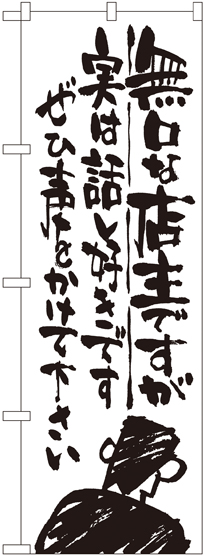 無口な店主ですが
実は話し好きです
ぜひ声をかけて下さい